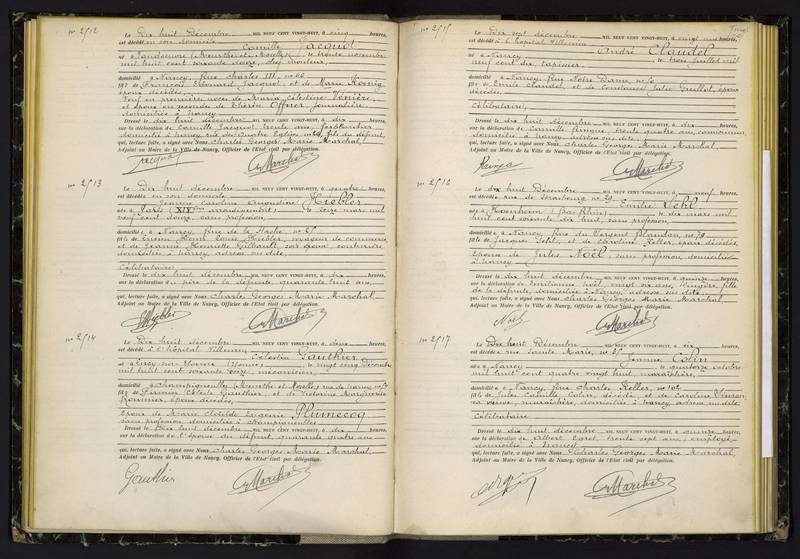 N° 2512
Le Dix huit Décembre MIL NEUF CENT VINGT-HUIT, à cinq heures,
est décédé en son domicile
Camille Jacquot
né à (Meurthe et Moselle), le trente novembre
mil huit cent soixante
domicilié à Nancy, Rue Charles III, n°
fils de François Edouard Jacquot et de Marie Koenig,
époux décédés,
Veuf en première noce de Maria Célestine Venière,
et époux en seconde de Thérèse Offner, journalière,
domiciliée à Nancy
Dressé le dix huit décembre MIL NEUF CENT VINGT-HUIT, à dix heures,
sur la déclaration de Camille Jacquot, trente ans, ferblantier,
domicilié à fils du défunt,
qui, lecture faite, a signé avec Nous Charles Georges Marie Marchal,
Adjoint au Maire de la Ville de Nancy, Officier de l'Etat civil par délégation.
Jacquot Marchal
N° 2513
Le Dix huit décembre MIL NEUF CENT VINGT-HUIT, à quinze heures,
est décédée en son domicile
Jeanne Caroline Augustine Hiebler
née à Paris (XIXme arrondissement), le seize mars mil
neuf cent douze, sans profession,
domiciliée à Nancy, rue de la Hache n°
fille de Lucien Henri Louis Hiebler, voyageur de commerce
et de Jeanne Henriette son épouse, couturière,
domiciliés à Nancy adresse susdite.
Célibataire,
Dressé le dix huit décembre MIL NEUF CENT VINGT-HUIT, à dix heures,
sur la déclaration du père de la défunte, quarante huit ans,
qui, lecture faite, a signé avec Nous Charles Georges Marie Marchal,
Adjoint au Maire de la Ville de Nancy, Officier de l'Etat civil par délégation.
Hiebler Marchal
N° 2514
Le Dix huit décembre MIL NEUF CENT VINGT-HUIT, à deux heures,
est décédé à l'hôpital Villemin
Célestin Gauthier
né à Lucy sur Yonne (Yonne), le vingt cinq Décembre
mil huit cent soixante seize, mécanicien,
domicilié à Champigneulles (Meurthe et Moselle), rue de Nancy n°
fils de Firmin Gauthier, et de Victorine Marguerite
époux décédés,
Epoux de Marie Clotilde Eugénie Plumecocq
sans profession domiciliée à Champigneulles
Dressé le Dix huit décembre MIL NEUF CENT VINGT-HUIT, à dix heures,
sur la déclaration de l'épouse du défunt, quarante quatre ans
qui, lecture faite, a signé avec Nous Charles Georges Marie Marchal,
Adjoint au Maire de la Ville de Nancy, Officier de l'Etat civil par délégation.
Gauthier Marchal
N° 2515
Le Dix sept décembre MIL NEUF CENT VINGT-HUIT, à vingt une heures,
est décédé à l'hôpital Villemin
André Claudel
né à Nancy, le trois juillet mil
neuf cent dix, tapissier,
domicilié à Nancy, Rue Notre Dame, n°
fils de Emile Claudel, et de Constance Julie Grillot, époux
décédés
Célibataire,
Dressé le dix huit décembre MIL NEUF CENT VINGT-HUIT, à dix heures,
sur la déclaration de Camille trente quatre ans, camionneur,
domicilié à Nancy
qui, lecture faite, a signé avec Nous Charles Georges Marie Marchal,
Adjoint au Maire de la Ville de Nancy, Officier de l'Etat civil par délégation.
Marchal
N° 2516
Le dix huit décembre MIL NEUF CENT VINGT-HUIT, à neuf heures,
est décédée rue de Strasbourg n° 29
Emilie Gehl
née à Hoenheim (Bas Rhin), le dix mars mil
huit cent soixante dix huit, sans profession,
domiciliée à Nancy, Rue du Sergent Blandan, n° 79
fille de Jacques Gehl, et de Caroline Keller, époux décédés,
Epouse de Jules Noël, sans profession domicilié
à Nancy
Dressé le dix huit décembre MIL NEUF CENT VINGT-HUIT, à quinze heures,
sur la déclaration de Emilienne Noël, vingt six ans, lingère, fille
de la défunte, domiciliée à Nancy, adresse susdite,
qui, lecture faite, a signé avec Nous Charles Georges Marie Marchal,
Adjoint au Maire de la Ville de Nancy, Officier de l'Etat civil par délégation.
Noël Marchal
N° 2517
Le Dix huit Décembre MIL NEUF CENT VINGT-HUIT, à dix heures,
est décédée rue Sainte Marie, n°
Jeanne Colin
née à Nancy, le quatorze octobre
mil huit cent quatre vingt huit, maraîchère,
domiciliée à Nancy, Rue Charles Keller, n° 102
fille de Jules Camille Colin, décédé, et de Caroline
sa veuve, maraîchère, domiciliée à Nancy, adresse susdite
Célibataire
Dressé le dix huit décembre MIL NEUF CENT VINGT-HUIT, à quinze heures,
sur la déclaration de Albert trente sept ans, employé
domicilié à Nancy
qui, lecture faite, a signé avec Nous Charles Georges Marie Marchal,
Adjoint au Maire de la Ville de Nancy, Officier de l'Etat civil par délégation.
Marchal